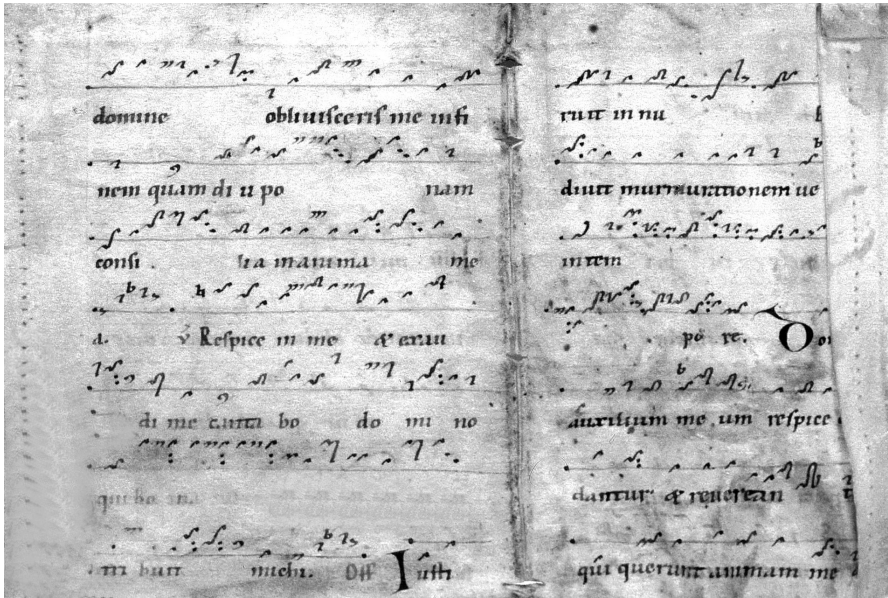 domine obliuisceris me in fi
nem quam di u po nam
consi lia in anima me
a. V Respice in me & exau
di me canta bo do mi no
qui bo na
tri buit michi. Off Iusti
ruit in nu b
diuit murmurationem ue
in tem
po re. Do
auxilium me um respice
dantur & reuerean t
qui querunt animam me